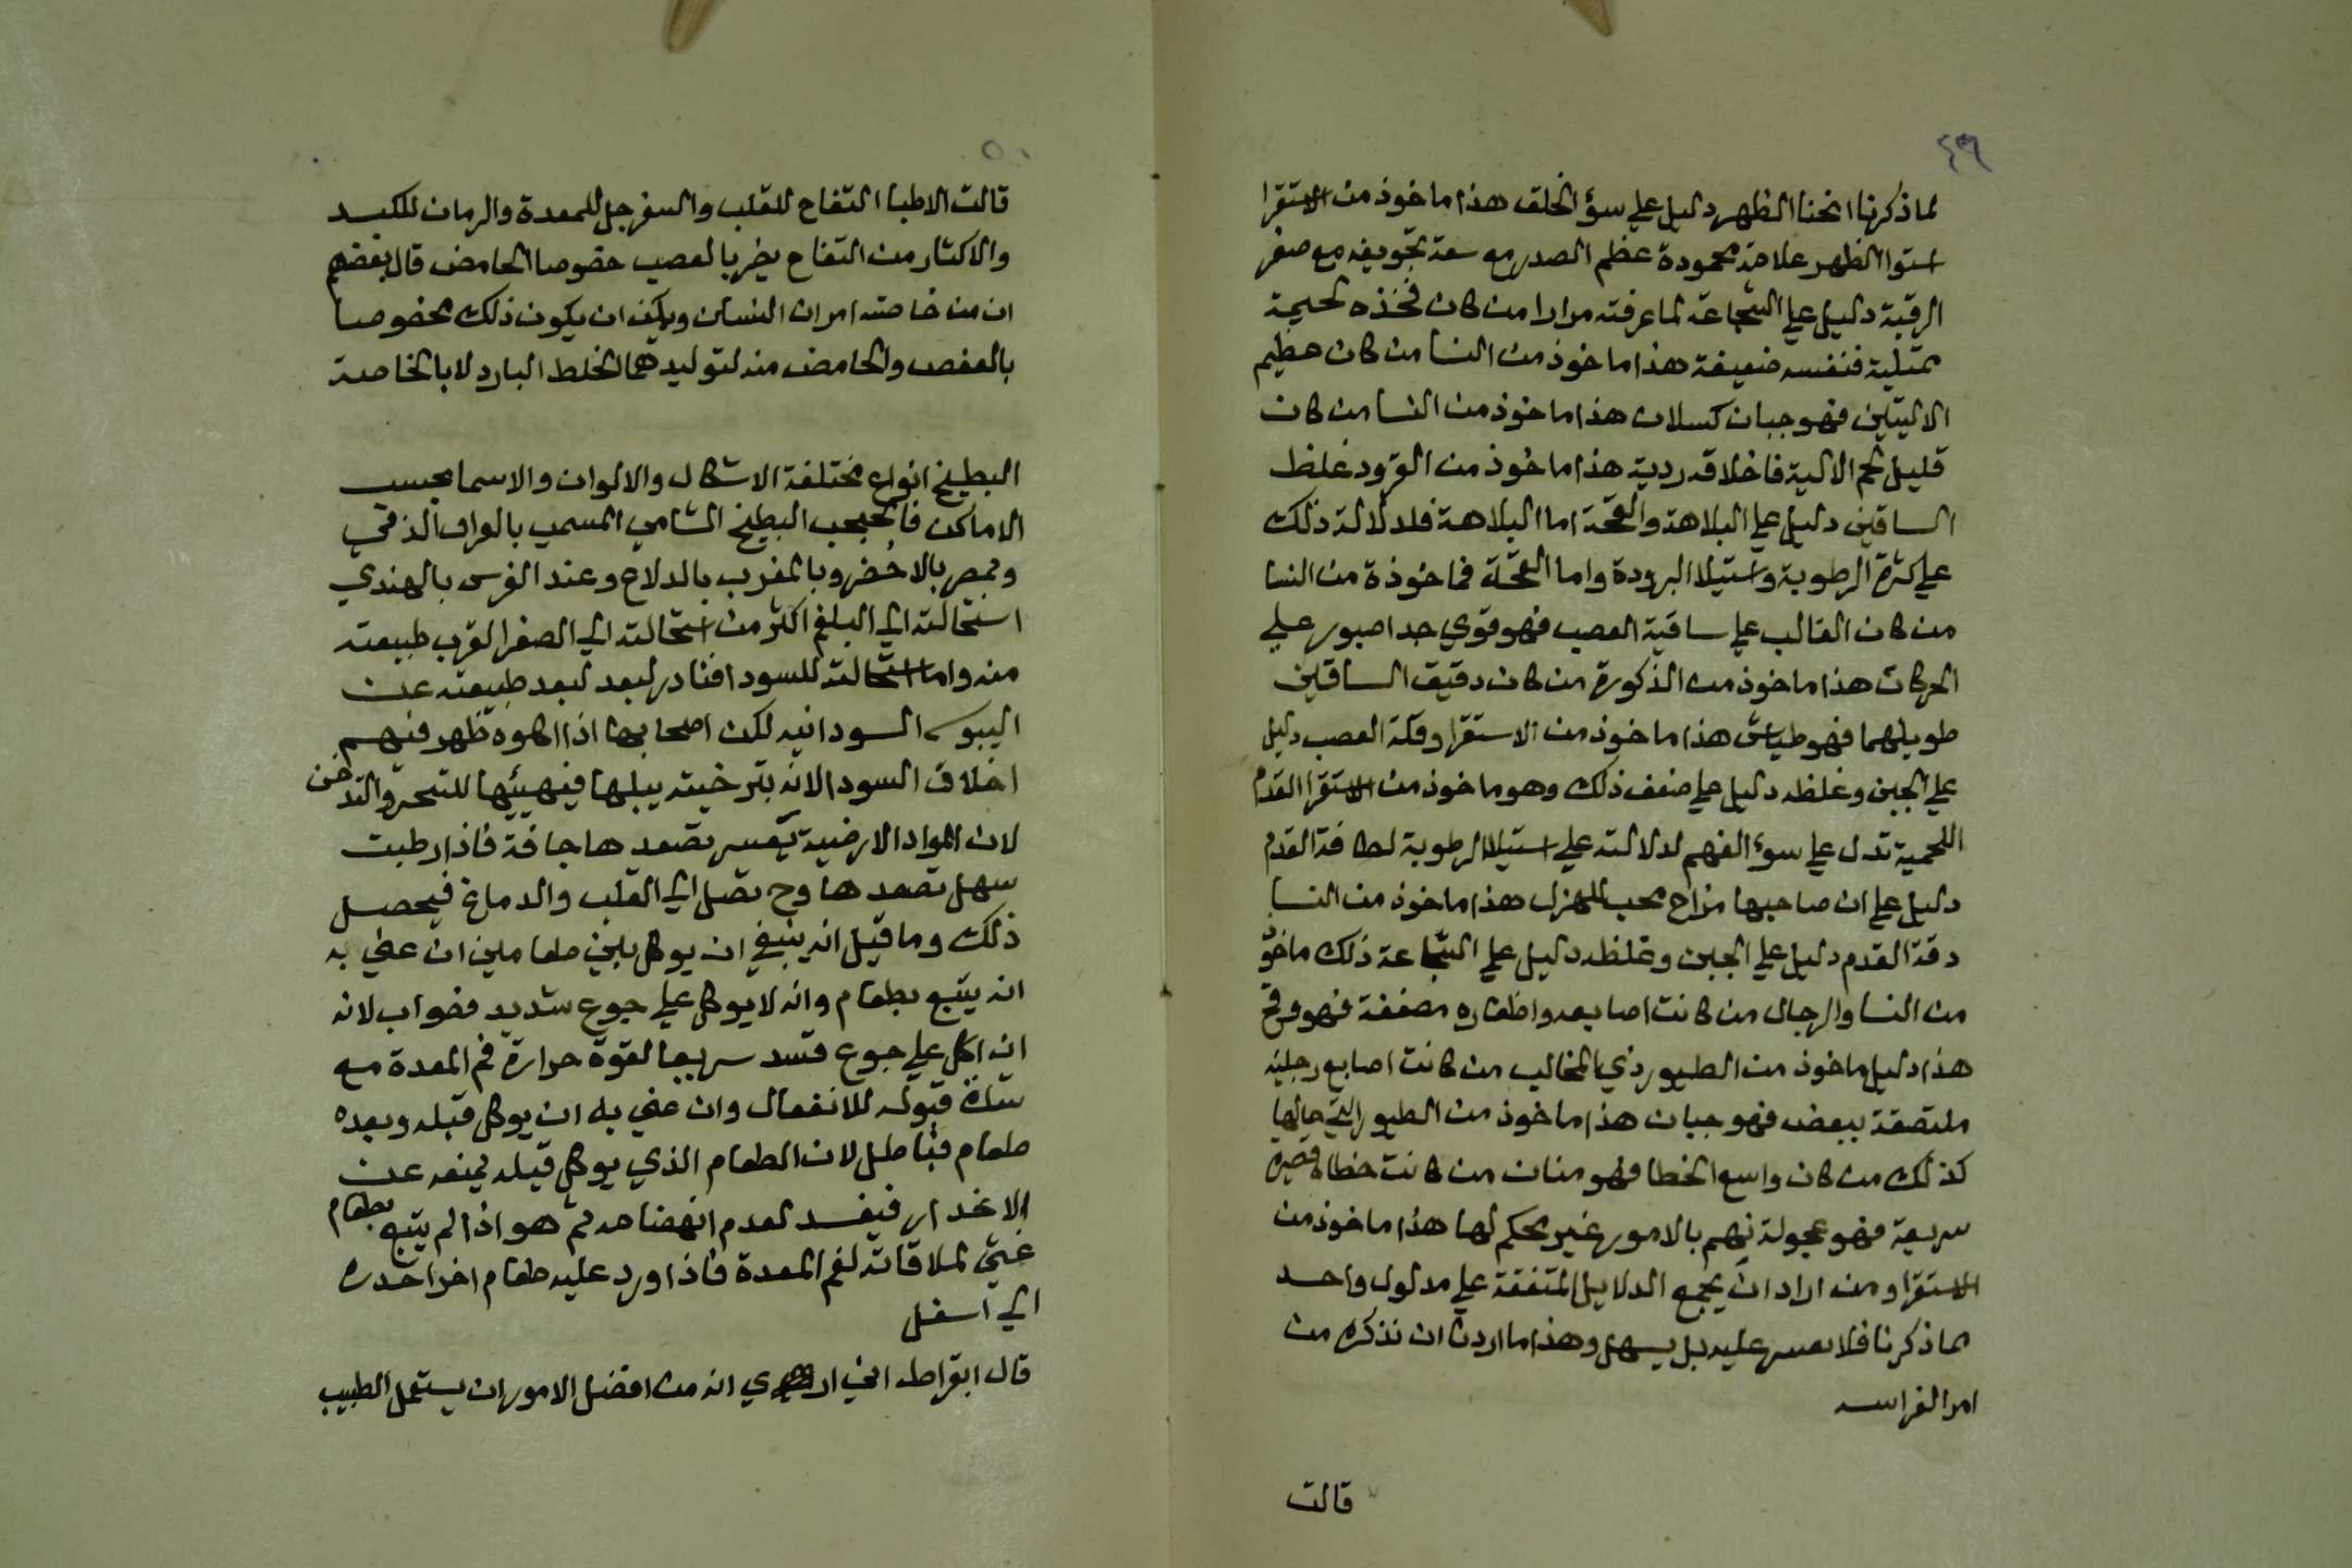 ٤٩
لما ذكرنا انحنا الظهر دليل علي سؤ الخلق هذا ماخوذ من الاستقرا
استوا الظهر علامة محمودة عظم الصدر مع سعة تجويفه مع صغر
الرقبة دليل علي الشجاعة لما عرفته مرارا من كان فخذه لحيمة
ممتلية فنفسه ضعيفة هذا ماخوذ من النسا من كان عظيم
الاليتين فهو جبان كسلان هذا ماخوذ من النسا من كان
قليل لحم الالية فاخلاقه ردية هذا ماخوذ من القرود غلظ
الساقين دليل علي البلاهة والقحة اما البلاهة فلدلالة ذلك
علي كثرة الرطوبة واستيلا البرودة واما القحة فماخوذة من النسا
من كان الغالب علي ساقية العصب فهو قوي جدا صبور علي
الحركات هذا ماخوذ من الذكورة من كان دقيق الساقين
طويلهما فهو طياش هذا ماخوذ من الاستقرا وقلة العصب دليل
علي الجبن وغلظه دليل علي ضعف ذلك وهو ماخوذ من الاستقرا القدم
اللحمية تدل علي سوء الفهم لدلالته علي استيلا الرطوبة لطافة القدم
دليل علي ان صاحبها مزاح محب للهزل هذا ماخوذ من النسا
دقة القدم دليل علي الجبن وغلظه دليل علي الشجاعة ذلك ماخوذ
من النسا والرجال من كانت اصابعه واظفاره معقفة فهو وقح
هذا دليل ماخوذ من الطيور ذي المخالب من كانت اصابع رجليه
ملتصقة ببعض فهو جبان هذا ماخوذ من الطيور التي حالها
كذلك من كان واسع الخطا فهو متان من كانت خطاه قصيرة
سريعة فهو عجولة نهم بالامور غير محكم لها هذا ماخوذ من
الاستقرا ومن اراد ان يجمع الدلايل المتفقة علي مدلول واحد
مما ذكرنا فلا يعسر عليه بل يسهل وهذا ما اردنا ان نذكره من
امر الفراسه
قالت
٥٠
قالت الاطبا التفاح للقلب والسفرجل للمعدة والرمان للكبد
والاكثار من التفاح يضر بالعصب خصوصا الحامض قال بعضهم
ان من خاصته امراث النسان ويمكن ان يكون ذلك مخصوصا
بالعفص والحامض منه لتوليدهما الخلط البارد لا بالخاصة
البطيخ انواع مختلفة الاشكال والالوان والاسما بحسب
الاماكن فالحبحب البطيخ الشامي المسمي بالعراق الذقي
وبمصر بالاخضر وبالمغرب بالدلاح وعند الفرس بالهندي
استحالته الي البلغم اكثر من استحالته الي الصفرا لقرب طبيعته
منه واما استحالته للسودا فنادر لبعد لبعد طبيعته عن
اليبوسه السودانيه لكن اصحابها اذا اكلوه ظهر فيهم
اخلاق السودا لانه بترخيته يبلها فيهيئها للتبخر والتدخن
لان المواد الارضية يعسر تصعدها جافة فاذا رطبت
سهل تصعدها وح تصل الي القلب والدماغ فيحصل
ذلك وما قيل انه ينبغي ان يوكل بين طعامين ان عني به
انه يتبع بطعام وانه لا يوكل علي جوع شديد فصواب لانه
ان اكل علي جوع فسد سريعا لقوة حرارة فم المعدة مع
شدة قبوله للانفعال وان عني به ان يوكل قبله وبعده
طعام فباطل لان الطعام الذي يوكل قبله يمنعه عن
الانحدار فيفسد لعدم انهضامه ثم هو اذا لم يتبع بطعام
غثي لملاقاته لفم المعدة فاذا ورد عليه طعام اخر احدره
الي اسفل
قال ابقراط اني اري انه من افضل الامور ان يستعمل الطبيب